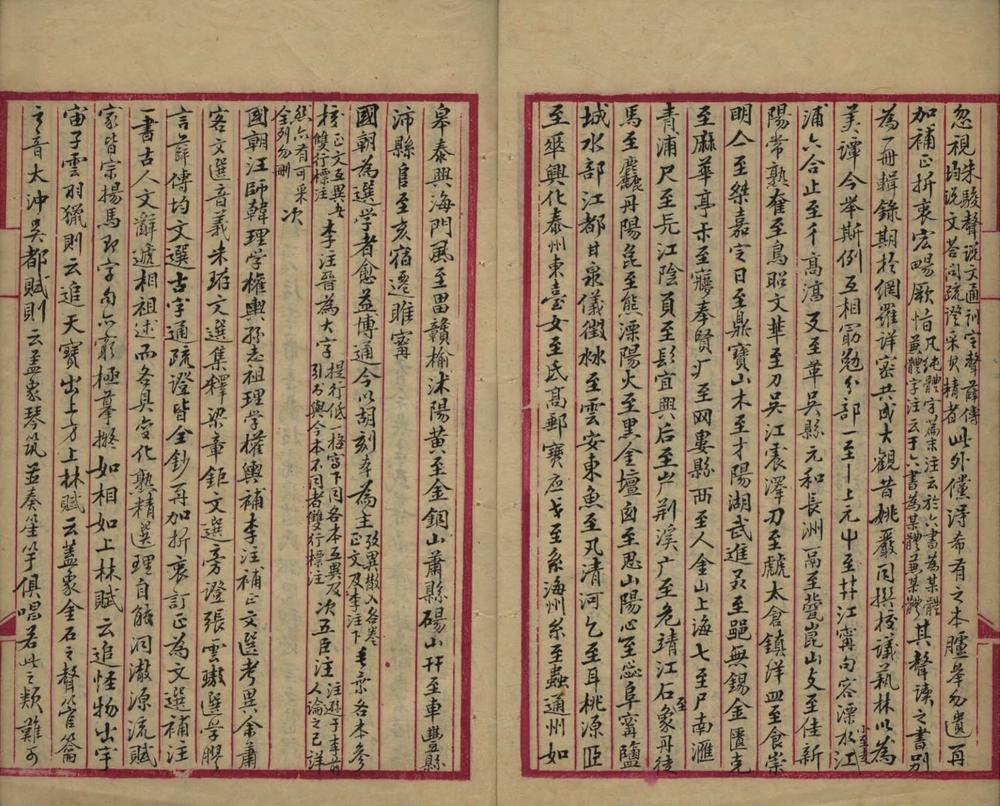 忽視朱駿聲說文通訓定聲薛傳均說文荅問疏證采其精者此外儻得希有之本臚舉勿遺再
加補正折衷宏暢厥恉凡純體字篇末注云於六書為某體兼體字注云于六書為某體兼某體其聲讀之書別
為一冊輯錄期於網羅詳密共成大觀昔姚嚴同撰校議藝林以為
美譚今举斯例互相勖勉分部一至丨上元屮至茻江甯句容溧水小至走江
浦六合止至千高淳㕛至革吳縣元和長洲鬲至㼱崑山攴至隹新
陽常熟奞至鳥昭文𠦒至刀吳江震澤刃至虤太倉鎮洋皿至食崇
明亼至桀嘉定日至鼎寶山木至才陽湖武進叒至𨛜無錫金匱克
至麻華亭耑至㝱奉賢疒至网婁縣西至人金山上海七至尸南滙
青浦尺至旡江陰頁至髟宜興后至屾荊溪广至危靖江石至象丹徒
馬至麤丹陽㲋至熊溧陽火至黑金壇囪至思山陽心至惢阜甯鹽
城水部江都甘泉儀徵沝至雲安東魚至卂清河乞至耳桃源𦣞
至𠌶興化泰州東臺女至氏高郵寶應戈至系海州糸至蟲通州如
皋泰興海門風至畕贛榆沭陽黃至金銅山蕭縣碭山幵至車豐縣
沛縣𨸏至亥宿遷雎甯
國朝為選學者愈益博通今以胡刻本為主攷異散入各卷正文及李注下毛袁各本參
校正文互異雙行標注李注晉為大字提行低一格寫下同各本互異及引書與今本不同者雙行標注次五臣注注遜于李前人論之已詳
然亦有可采全列勿刪次
國朝汪師韓理學權輿孫志祖理學權輿補李注補正文選考異余蕭
客文選音義朱珔文選集釋梁章鉅文選旁證張雲璈選學膠
言薛傳均文選古字通疏證皆全鈔再加折衷訂正為文選補注
一書古人文辭遞相祖述而各具變化熟精選理自能洞澈源流賦
家皆宗揚馬即字句亦窮極摹擬如相如上林賦云追怪物出宇
宙子雲羽獵則云追天寶出一方上林賦云葢象金石之聲管籥
之音太沖吳都賦則云葢象琴筑並奏笙竽俱唱若此之類難可